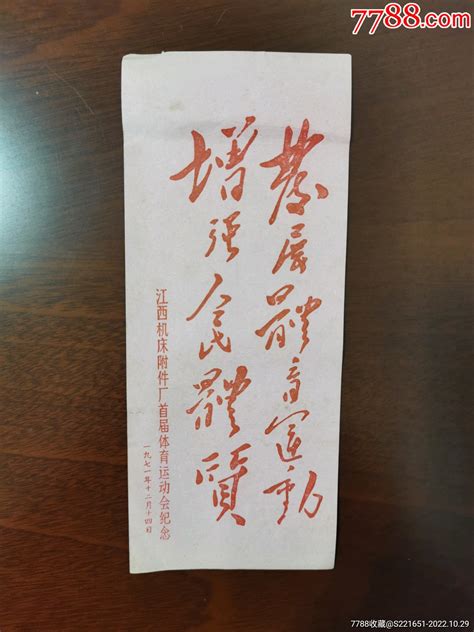 7788.com
發展體育運動
增强人民體質
江西机床附件厂首届体育运动会纪念
一九七一年十二月十四日
7788收藏@S221651-2022.10.29